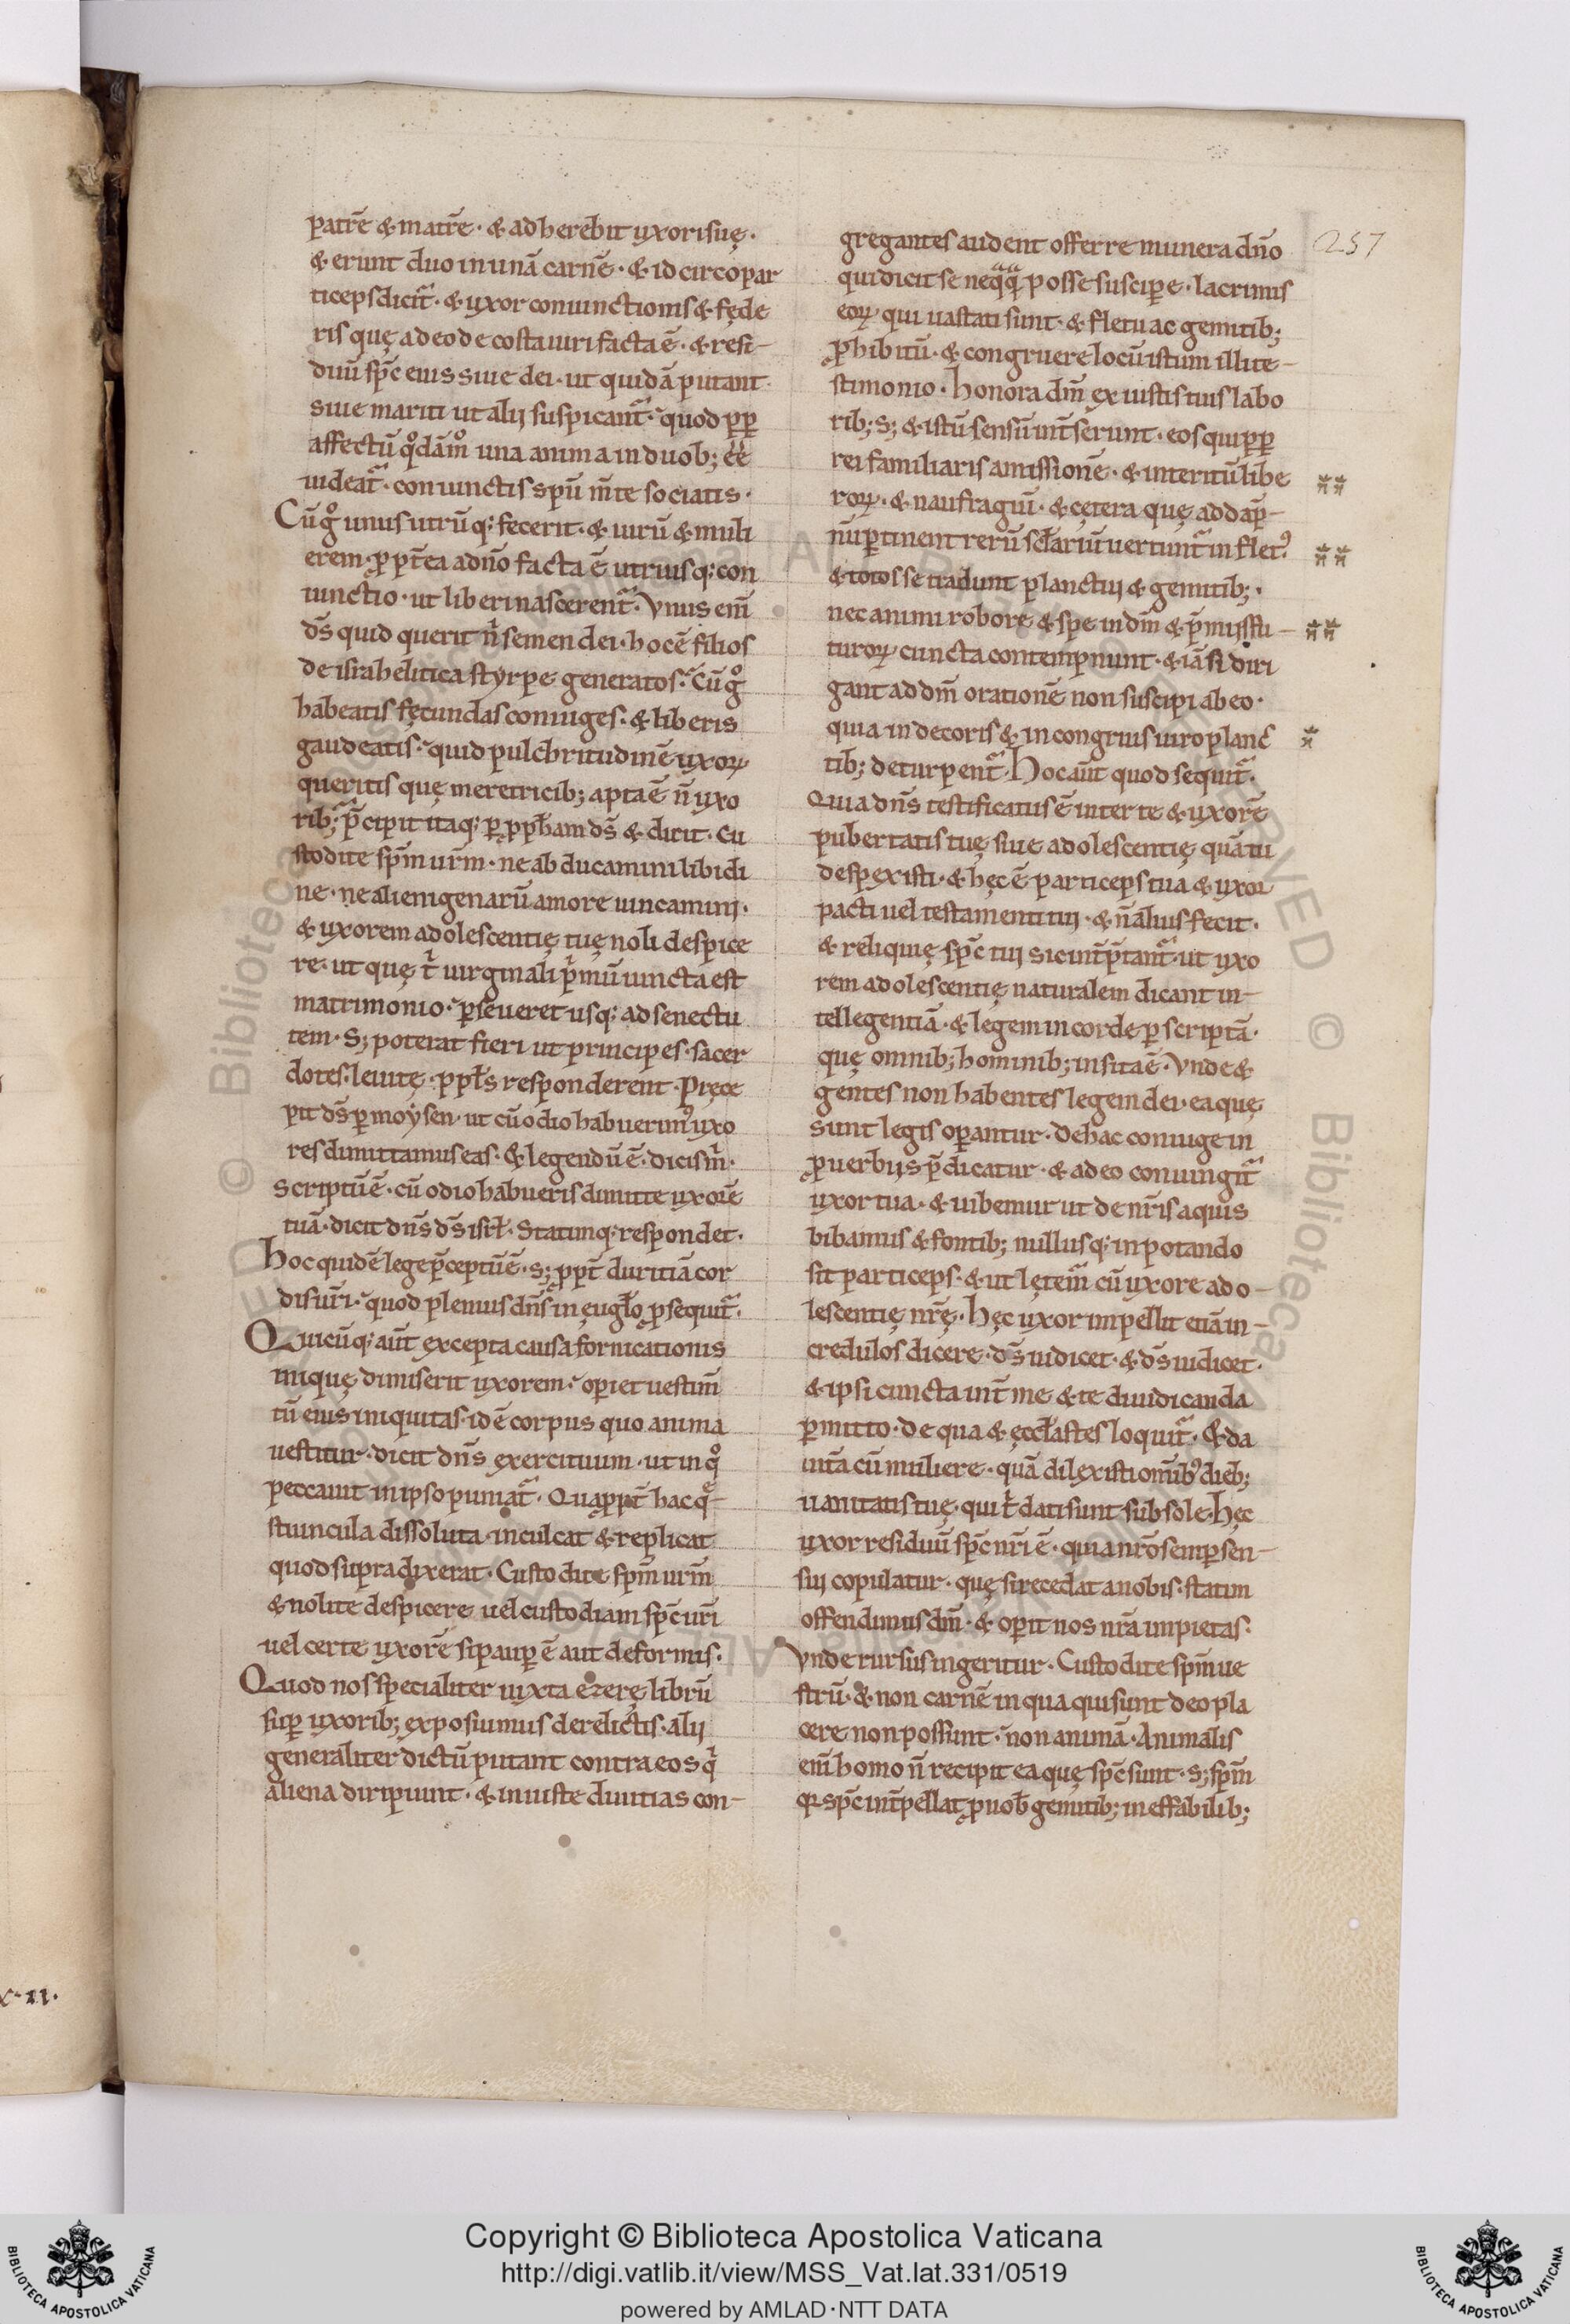 patrē & matrē · & adherebit uxori suę ·
& erunt duo in unā carnē · & idcirco par
ticeps dicit̄ · & uxor coniunctionis & fęde
ris quę adeo de costa uiri facta ē · & resi-
duū sp̄c eius siue dei · ut quidā putant ·
siue mariti ut alij suspicant̄ · quod pp̱
affectū q°dām° una anima in duob; eē
uideat̄ · coniunctis spū m̄te sociatis ·
Cū g° unus utrūq; fecerit · & uirū & muli
erem · ꝓpt̄ea a dn̄o facta ē utriusq; con
iunctio · ut liberi nascerent̄ · Vnus eni̅
d̄s quid querit n̄ semen dei · hoc ē filios
de israhelitica styrpe generatos · Cū g°
habeatis fęcundas coniuges · & liberis
gaudeatis · quid pulchritudinē uxoꝝ
queritis quę meretricib; apta ē n̄ uxo
rib; p̄cipit itaq; ꝑ ꝓph̄am d̄s & dicit · Cu
stodite sp̄m ur̄m · ne abducamini libidi
ne · ne alienigenarū amore uincamini ·
& uxorem adolescentię tuę noli despice
re · ut quę t' uirginali p'mū iuncta est
matrimonio · ꝑseueret usq; ad senectu
tem · S; poterat fieri ut principes · sacer
dotes · leuitę · ppl̄s responderent · Pręce
pit d̄s ꝑ moysen · ut cū odio habuerim⁹ uxo
res dimittamus eas · & legendū ē · dicis m' ·
Scriptū ē · cū odio habueris dimitte uxorē
tuā · dicit dn̄s d̄s isrł · Statimq; respondet ·
Hoc quidē lege p̄ceptū ē · s; ꝓpt̄ duritiā cor
dis ur̄i · quod plenius dn̄s in ęuglo ꝓsequit̄ ·
Quicūq; aut̄ excepta causa fornicationis
iniquę dimiserit uxorem · operiet uestim̄
tū eius iniquitas · id ē corpus quo anima
uestitur · dicit dn̄s exercituum · ut in q°
peccauit in ipso puniat̄ · Quaꝓpt̄ hac q̄-
stiuncula dissoluta · inculcat & replicat
quod supra dixerat · Custodite sp̄m ur̄m
& nolite despicere uel custodiam sp̄c ur̄i
uel certe uxorē si pauꝑ ē aut deformis ·
Quod nos specialiter iuxta ezerę librū
suꝑ uxorib; exposuimus derelictis · alij
generaliter dictū putant contra eos q'
aliena diripiunt · & iniuste diuitias con-
gregantes audent offerre munera dn̄o
qui dicit se neq̄q̄ posse suscipe · lacrimis
eoꝝ · qui uastati sunt · & fletu ac gemitib;
ꝓhibitū · & congruere locū istum illi te-
stimonio · Honora dm̄ ex iustis tuis labo
rib; S; & istū sensū int̄serunt · eos qui pp̱
rei familiaris amissionē · & interitū libe
roꝝ · & naufragiū · & cętera quę ad dāp-
nū ꝑtinent rerū scl̄ariū uertunt̄ in flet⁹
& totos se tradunt planctui & gemitib; ·
nec animi robore & spe in dm̄ & ꝓmissū fu-
turoꝝ cuncta contempnunt · & iā si diri
gant ad dm̄ orationē non suscipi ab eo ·
quia indecoris & incongruis uiro planc
tib; deturpent̄ · Hoc aut̄ quod sequit̄ ·
Quia dn̄s testificatus ē inter te & uxorē
pubertatis tuę siue adolescentię quā tu
despexisti · & hęc ē particeps tua & uxor
pacti uel testamenti tui · & n̄ alius fecit ·
& reliquię sp̄c tui sic int̄p̄tant̄ · ut uxo
rem adolescentię naturalem dicant in-
tellegentiā · & legem in corde ꝑscriptā ·
quę omnib; hominib; insita ē · Vnde &
gentes non habentes legem dei · ea quę
sunt legis operantur · De hac coniuge in
ꝓuerbijs p̄dicatur · & a deo coniungit̄
uxor tua · & uibemur ut de nr̄is aquis
bibamus & fontib; nullusq; in potando
sit particeps · & ut lętem̄ cū uxore ado-
lescentię nr̄ę · Hęc uxor impellit etiā in-
credulos dicere · d̄s uidicet · & d̄s iudicet ·
& ipsi cuncta int̄ me & te diiudicanda
ꝑmitto · de qua & ęccl̄astes loquit̄ · & da
uitā cū muliere · quā dilexisti omib⁹ dieb;
uanitatis tuę · qui t' dati sunt sub sole · Hęc
uxor residuū sp̄c nr̄i ē · quia nr̄o semꝑ sen-
sui copulatur · quę si recedat a nobis · statim
offendimus dm̄ · & oꝑit nos nr̄a impietas ·
Vnde rursus ingeritur · Custodite sp̄m ue
strū · & non carnē in qua qui sunt deo pla
cere non possunt · non animā · Animalis
eni̅ homo n̄ recipit ea quę sp̄c sunt · s; sp̄m
q̨ sp̄c int̄pellat ꝓ nob̄ gemitib; ineffabilib;
257
x·II·
© Biblioteca Apostolica Vaticana
ALL RIGHTS RESERVED
Copyright © Biblioteca Apostolica Vaticana
http://digi.vatlib.it/view/MSS_Vat.lat.331/0519
powered by AMLAD·NTT DATA
BIBLIOTECA APOSTOLICA VATICANA
BIBLIOTECA APOSTOLICA VATICANA